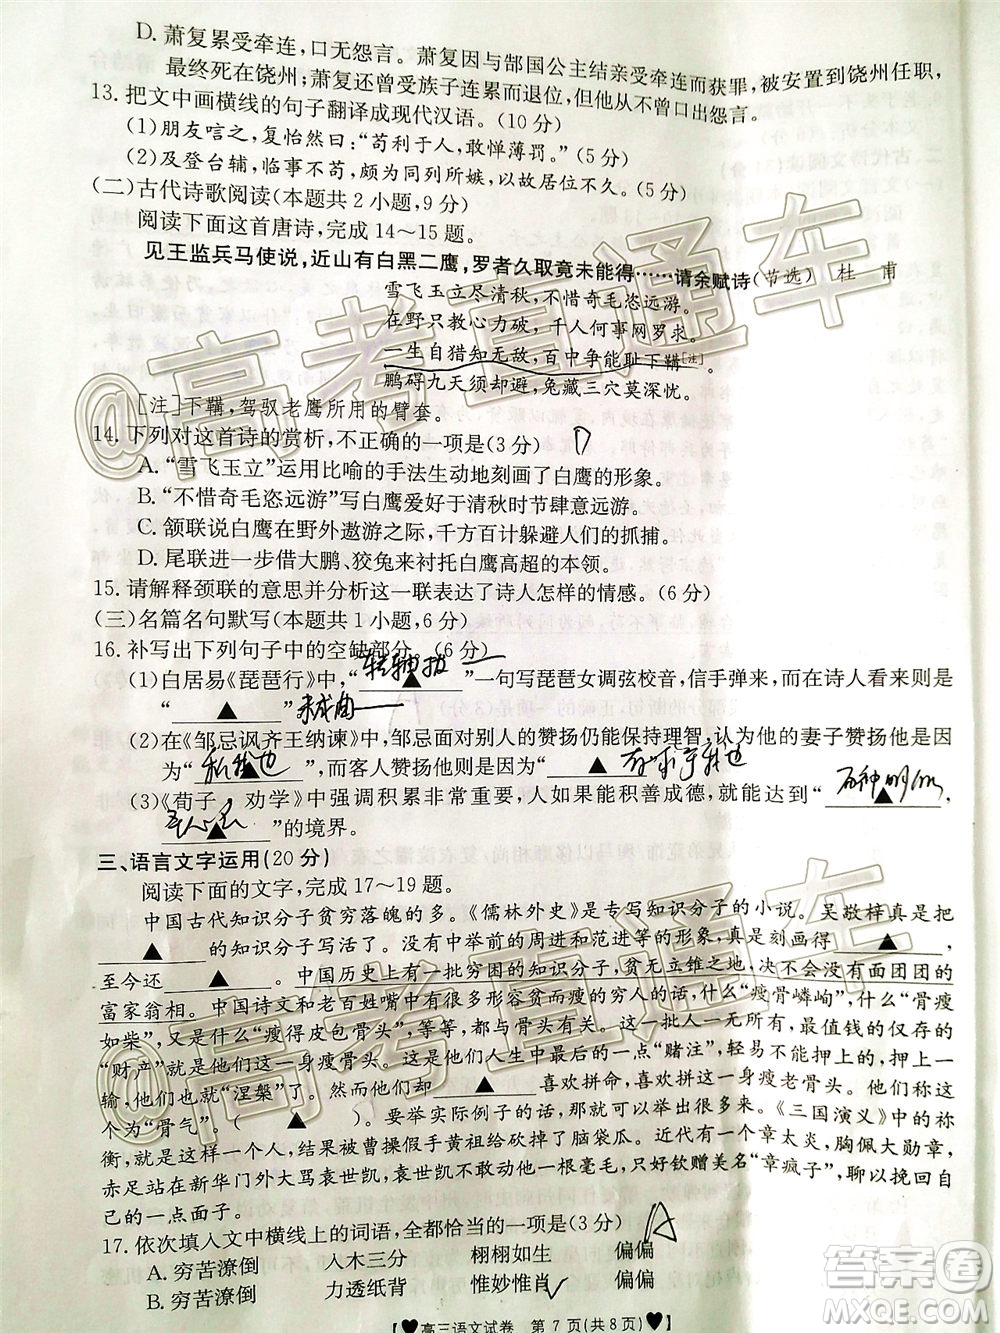 D. 萧复累受牵连，口无怨言。萧复因与郜国公主结亲受牵连而获罪，被安置到饶州任职，
最终死在饶州；萧复还曾受族子连累而退位，但他从不曾口出怨言。
13. 把文中画横线的句子翻译成现代汉语。(10 分)
(1)朋友唁之，复怡然曰：“苟利于人，敢惮薄罚。”(5 分)
(2)及登台辅，临事不苟，颇为同列所嫉，以故居位不久。(5 分)
(二)古代诗歌阅读(本题共 2 小题，9 分)
阅读下面这首唐诗，完成 14～15 题。
见王监兵马使说，近山有白黑二鹰，罗者久取竟未能得……请余赋诗(节选) 杜 甫
雪飞玉立尽清秋，不惜奇毛恣远游。
在野只教心力破，千人何事网罗求。
一生自猎知无敌，百中争能耻下鞲[注]。
鹏碍九天须却避，兔藏三穴莫深忧。
[注]下鞲，驾驭老鹰所用的臂套。
14. 下列对这首诗的赏析，不正确的一项是(3 分) D
A. “雪飞玉立”运用比喻的手法生动地刻画了白鹰的形象。
B. “不惜奇毛恣远游”写白鹰爱好于清秋时节肆意远游。
C. 颔联说白鹰在野外遨游之际，千方百计躲避人们的抓捕。
D. 尾联进一步借大鹏、狡兔来衬托白鹰高超的本领。
15. 请解释颈联的意思并分析这一联表达了诗人怎样的情感。(6 分)
(三)名篇名句默写(本题共 1 小题，6 分)
16. 补写出下列句子中的空缺部分。(6 分)
(1)白居易《琵琶行》中，“▲”一句写琵琶女调弦校音，信手弹来，而在诗人看来则是
“▲”未成曲
(2)在《邹忌讽齐王纳谏》中，邹忌面对别人的赞扬仍能保持理智，认为他的妻子赞扬他是因
为“私我也▲”，而客人赞扬他则是因为“▲”。
(3)《荀子·劝学》中强调积累非常重要，人如果能积善成德，就能达到“▲，
▲”的境界。
三、语言文字运用(20 分)
阅读下面的文字，完成 17～19 题。
中国古代知识分子贫穷落魄的多。《儒林外史》是专写知识分子的小说。吴敬梓真是把
▲的知识分子写活了。没有中举前的周进和范进等的形象，真是刻画得▲，
至今还▲。中国历史上有一批穷困的知识分子，贫无立锥之地，决没有面团团的
富家翁相。中国诗文和老百姓嘴中都很形象，什么“瘦骨嶙峋”，什么“骨瘦
如柴”，又是什么“瘦得皮包骨头”，等等，都与骨头有关。这一批人，最值钱的仅存的
“财产”就是他们这一身瘦骨头。这是他们人生中最后的一点“赌注”，轻易不能押上的，押上一
输，他们也就“涅槃”了。然而他们却▲喜欢拼命，喜欢拼这一身瘦老骨头。他们称这个
为“骨气”。(　　)。要举实际例子的话，那还是可以举出几个来的。《三国演义》中的祢
衡，就是这样一个人，结果被曹操假手黄祖给砍掉了脑袋瓜。近代有一个章太炎，胸佩大勋章，
赤足站在新华门外大骂袁世凯，袁世凯不敢动他一根毫毛，只好钦赠美名“章疯子”，聊以挽回自
己的一点面子。
17. 依次填入文中横线上的词语，全都恰当的一项是(3 分) A
A. 穷苦潦倒　入木三分　栩栩如生　偏偏
B. 穷苦潦倒　力透纸背　惟妙惟肖　偏偏
【♥高三语文试卷　第 7 页(共 8 页)♥】
@高考直通车
答案圈
MXQE.COM